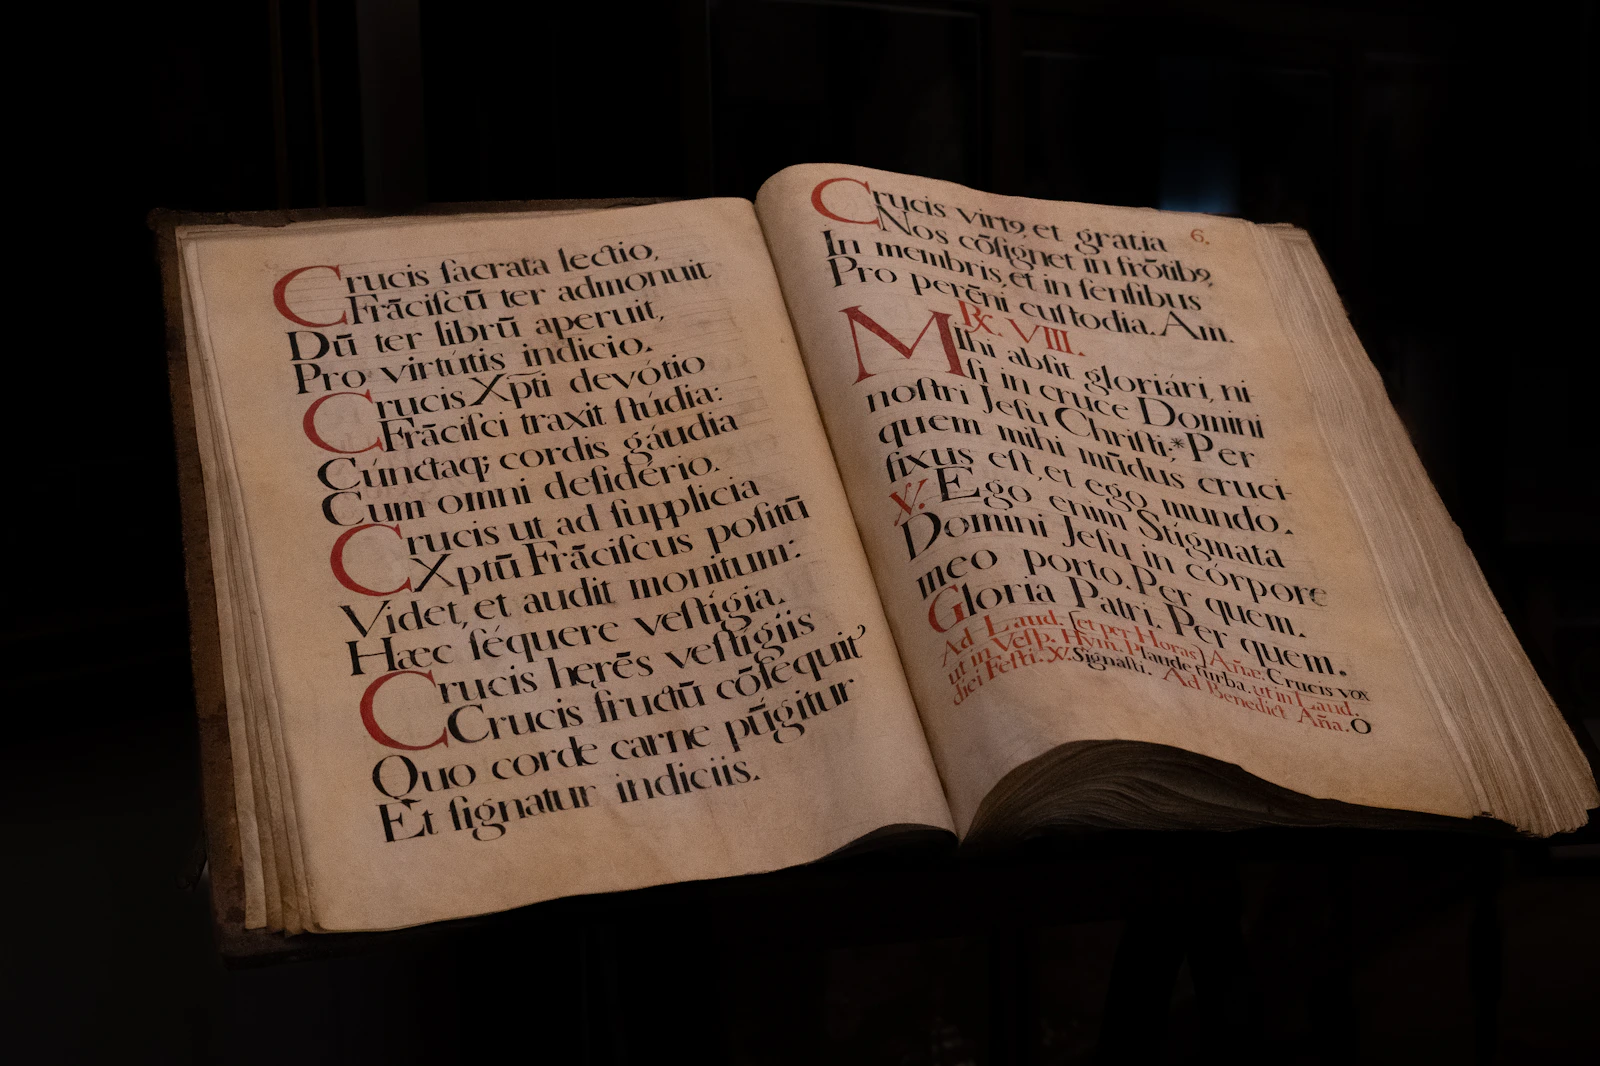 Crucis ſacrata lectio,
Frāciſcū ter admonuit
Dū ter librū aperuit,
Pro virtútis indicio.
Crucis Xpti devótio
Frāciſci traxit ſtúdia:
Cúnctaq; cordis gáudia
Cum omni deſidério.
Crucis ut ad ſupplicia
Xptū Frāciſcus poſitū
Videt, et audit monitum:
Hæc ſéquere veſtígia.
Crucis herēs veſtígiis
Crucis fructū cōſequit'
Quo corde carne pūgitur
Et ſignatur indiciis.
Crucis virtꝰ, et gratia
6.
Nos cōſignet in frōtibꝰ,
In membris, et in ſenſibus
Pro perēni cuſtodia. Am.
℟. VIII.
Mihi abſit gloriári, ni-
ſi in cruce Domini
noſtri Jeſu Chriſti: * Per
quem mihi mūdus cruci-
fixus eſt, et ego mundo.
℣. Ego enim Stígmata
Domini Jeſu in córpore
meo porto. Per quem.
Gloria Patri. Per quem.
Ad Laud. (et per Horas) Añæ: Crucis vox
ut in Veſp. Hym. Plaude turba. ut in Laud.
dici Feſti. ℣. Signaſti. Ad Benedict Aña. O